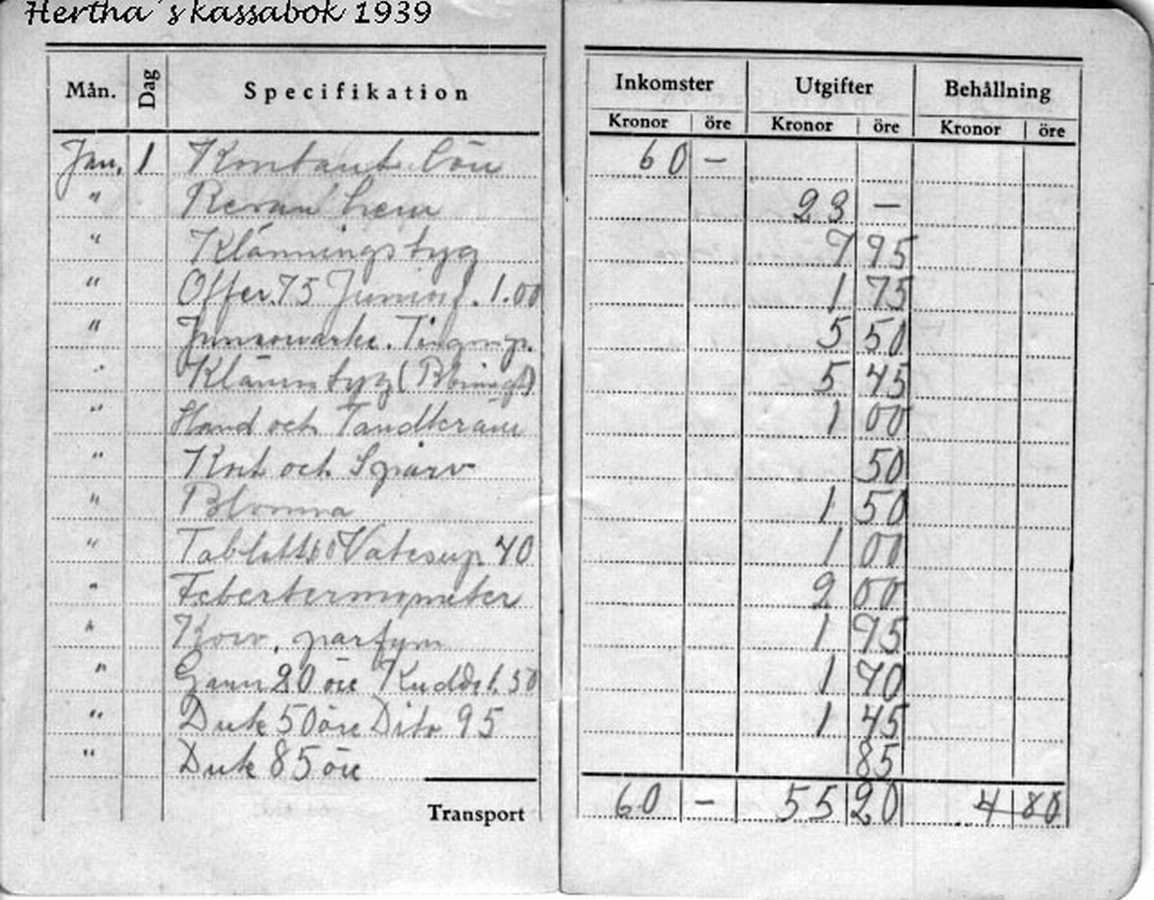 Hertha´s kassabok 1939
Mån. Dag Specifikation Inkomster Utgifter Behållning
Kronor öre Kronor öre Kronor öre
Jan. 1 Kontant lön 60 –
" Resan hem 23 –
" Klänningstyg 7 95
" Offer. 75 Junior. 1.00 1 75
" 5 50
" Klänn tyg ( 5 45
" Hand och Tandkräm 1 00
" Kort och Sparv 50
" Blomma 1 50
" 40 1 00
" Febertermometer 2 00
" Korv, parfym 1 95
" Garn 20 öre Kudde 1.50 1 70
" Duk 50 öre Dito 95 1 45
" Duk 85 öre 85
Transport 60 – 55 20 4 80